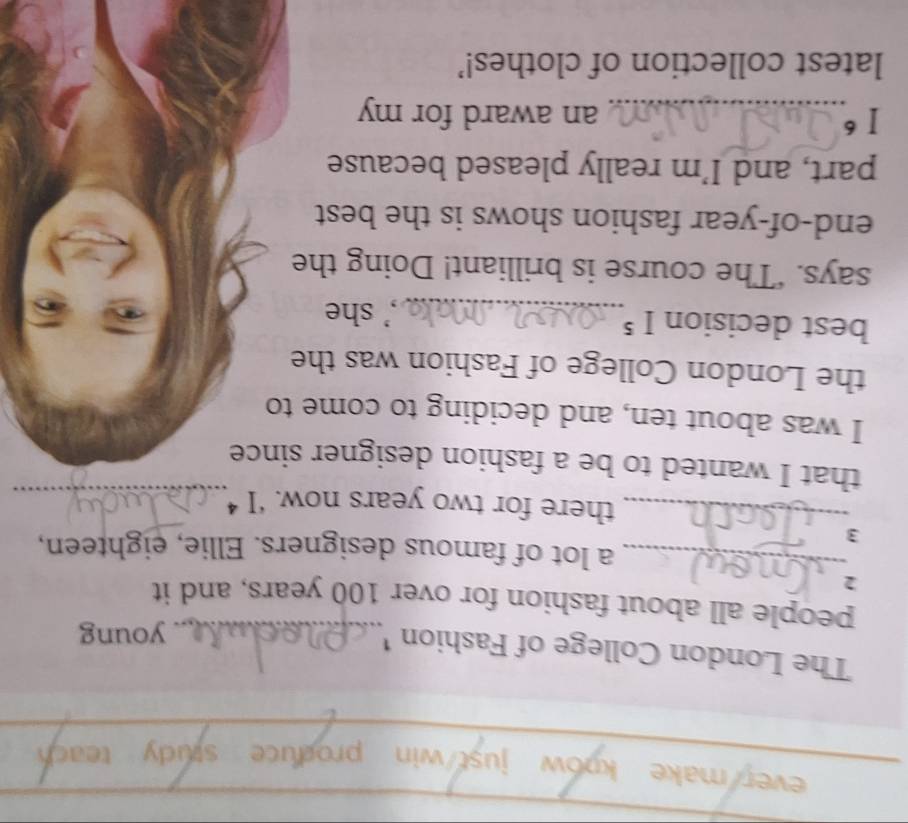 ever/make know just/win produce study teach
The London College of Fashion ¹ produce young
people all about fashion for over 100 years, and it
² know a lot of famous designers. Ellie, eighteen,
³ teach there for two years now. ‘I ⁴
that I wanted to be a fashion designer since
I was about ten, and deciding to come to
the London College of Fashion was the
best decision I ⁵ ever make’, she
says. ‘The course is brilliant! Doing the
end-of-year fashion shows is the best
part, and I’m really pleased because
I ⁶ Just win an award for my
latest collection of clothes!’